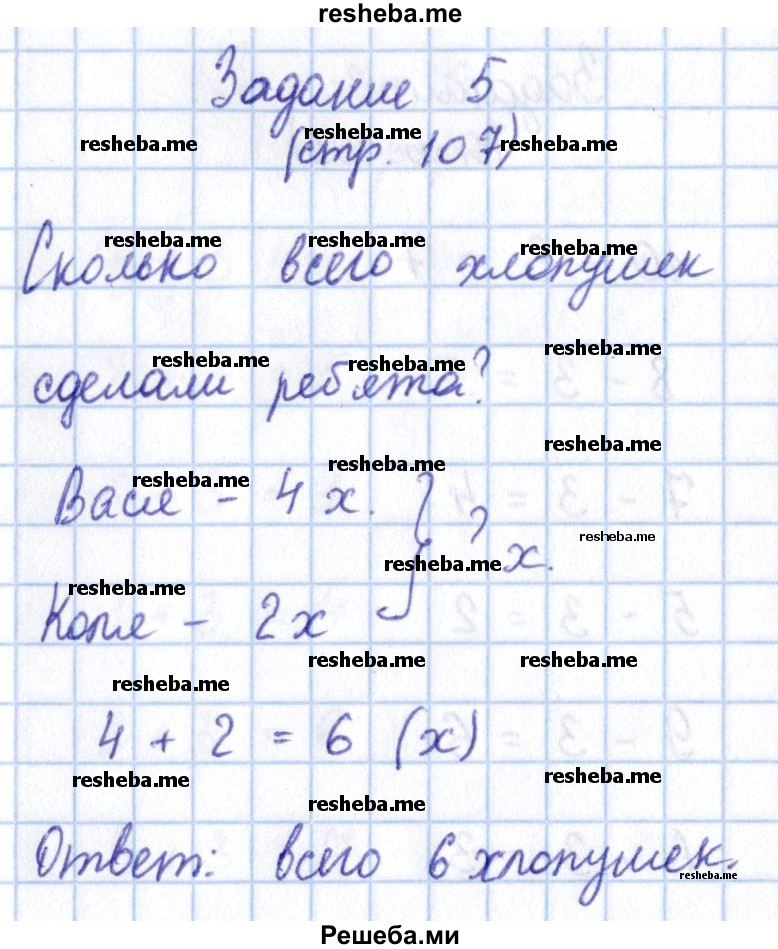 resheba.me
Задание 5
resheba.me resheba.me resheba.me
(стр. 107)
resheba.me resheba.me resheba.me
Сколько всего хлопушек
resheba.me resheba.me resheba.me
сделали ребята?
resheba.me
resheba.me resheba.me
Вася - 4 х.
resheba.me
resheba.me ? х.
resheba.me
Коля - 2х
resheba.me resheba.me
resheba.me
4 + 2 = 6 (х)
resheba.me resheba.me
resheba.me
Ответ: всего 6 хлопушек.
resheba.me
Решеба.ми